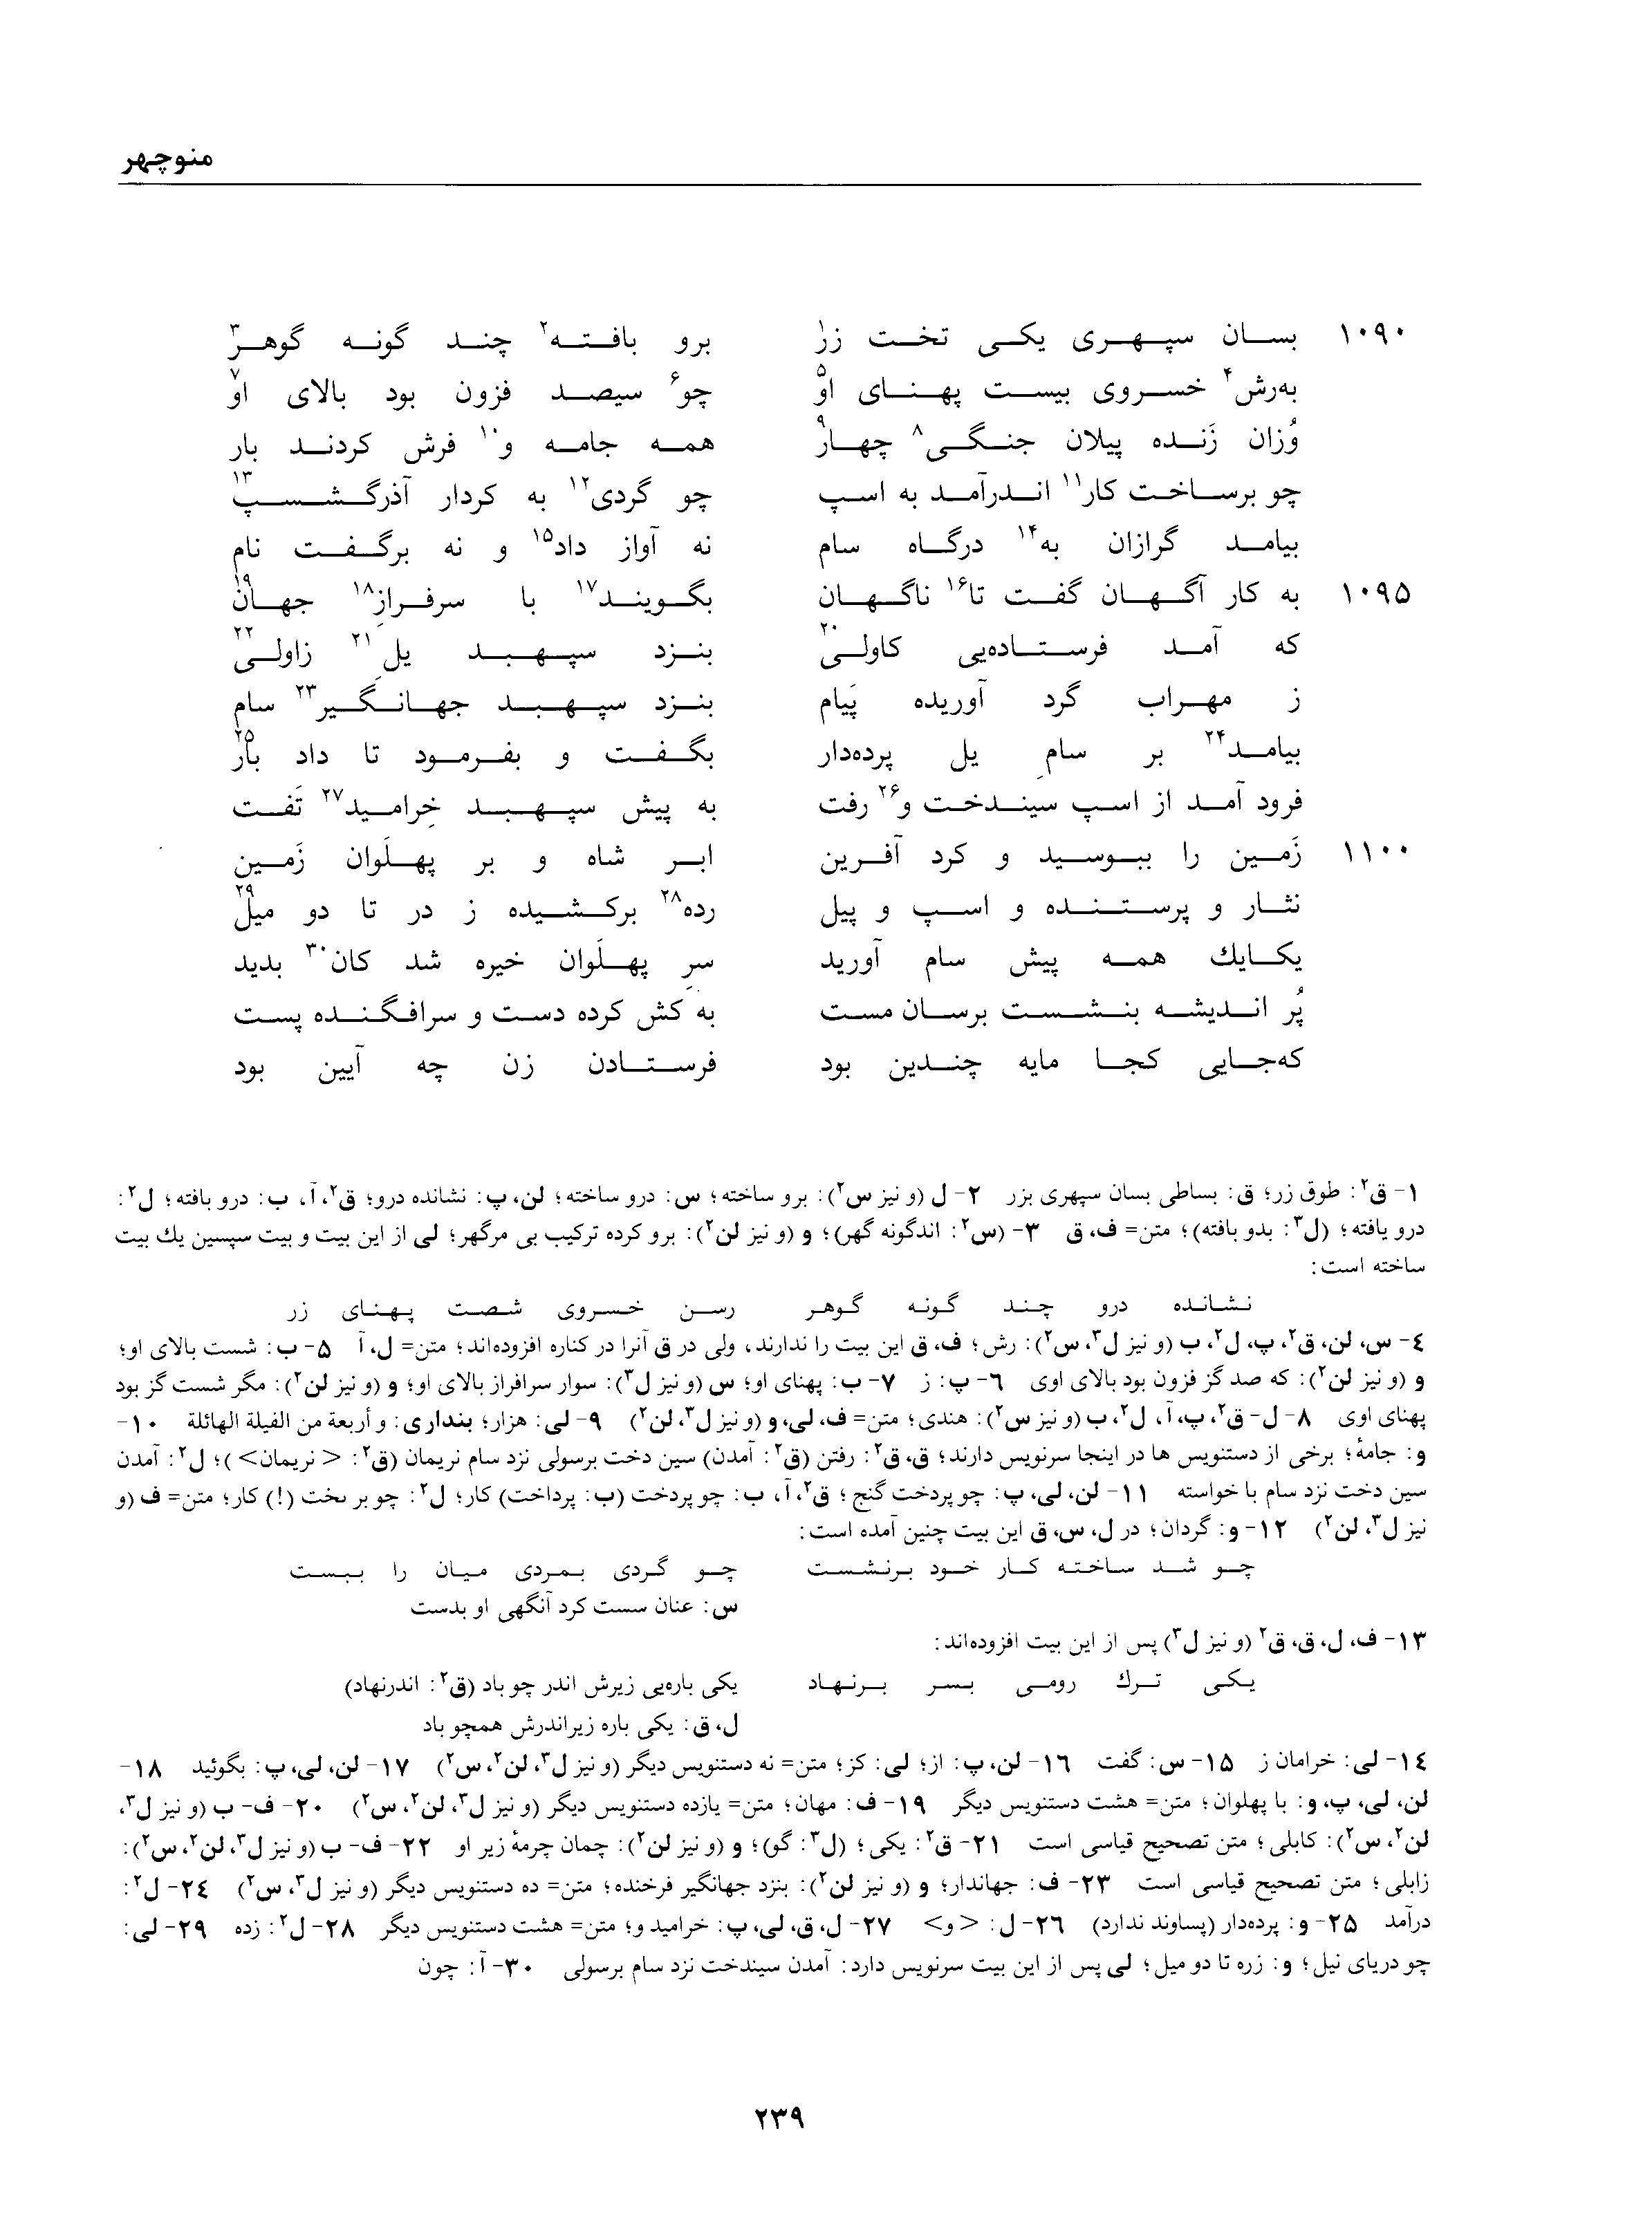 منوچهر
۱۰۹۰ بسان سپهری یکی تخت زر۱ برو بافته۲ چند گونه گوهر۳
به‌رش۴ خسروی بیست پهنای او۵ چو۶ سیصد فزون بود بالای او۷
وُزان زَنده پیلان جنگی۸ چهار۹ همه جامه و۱۰ فرش کردند بار
چو برساخت کار۱۱ اندرآمد به اسپ چو گردی۱۲ به کردار آذرگشسپ۱۳
بیامد گرازان به۱۴ درگاه سام نه آواز داد۱۵ و نه برگفت نام
۱۰۹۵ به کار آگهان گفت تا۱۶ ناگهان بگویند۱۷ با سرفرازِ۱۸ جهان۱۹
که آمد فرستاده‌یی کاولی۲۰ بنزد سپهبد یل۲۱ زاولی۲۲
ز مهراب گرد آوریده پَیام بنزد سپهبد جهانگیر۲۳ سام
بیامد۲۴ بر سامِ یل پرده‌دار بگفت و بفرمود تا داد بار۲۵
فرود آمد از اسپ سیندخت و۲۶ رفت به پیش سپهبد خِرامید۲۷ تَفت
۱۱۰۰ زَمین را ببوسید و کرد آفرین ابر شاه و بر پهلَوان زَمین
نثار و پرستنده و اسپ و پیل رده۲۸ برکشیده ز در تا دو میل۲۹
یکایك همه پیش سام آورید سرِ پهلَوان خیره شد کان۳۰ بدید
پُر اندیشه بنشست برسان مست به کش کرده دست و سرافگنده پست
که‌جایی کجا مایه چندین بود فرستادن زن چه آیین بود
۱- ق۲: طوق زر؛ ق: بساطی بسان سپهری بزر ۲- ل (و نیز س۲): برو ساخته؛ س: درو ساخته؛ لن، پ: نشانده درو؛ ق۲، آ، ب: درو بافته؛ ل۲:
درو یافته؛ (ل۳: بدو بافته)؛ متن= ف، ق ۳- (س۲: اندگونه گهر)؛ و (و نیز لن۲): برو کرده ترکیب بی مرگهر؛ لی از این بیت و بیت سپسین یك بیت
ساخته است:
نشانده درو چند گونه گوهر رسن خسروی شصت پهنای زر
۴- س، لن، ق۲، پ، ل۲، ب (و نیز ل۳، س۲): رش؛ ف، ق این بیت را ندارند، ولی در ق آنرا در کناره افزوده‌اند؛ متن= ل، آ ۵- ب: شست بالای او؛
و (و نیز لن۲): که صد گز فزون بود بالای اوی ۶- پ: ز ۷- ب: پهنای او؛ س (و نیز ل۳): سوار سرافراز بالای او؛ و (و نیز لن۲): مگر شست گز بود
پهنای اوی ۸- ل- ق۲، پ، آ، ل۲، ب (و نیز س۲): هندی؛ متن= ف، لی، و (و نیز ل۳، لن۲) ۹- لی: هزار؛ بنداری: و أربعة من الفیلة الهائلة ۱۰-
و: جامهٔ؛ برخی از دستنویس ها در اینجا سرنویس دارند؛ ق، ق۲: رفتن (ق۲: آمدن) سین دخت برسولی نزد سام نریمان (ق۲: < نریمان>)؛ ل۲: آمدن
سین دخت نزد سام با خواسته ۱۱- لن، لی، پ: چو پردخت گنج؛ ق۲، آ، ب: چو پردخت (ب: پرداخت) کار؛ ل۲: چو بر بخت (!) کار؛ متن= ف (و
نیز ل۳، لن۲) ۱۲- و: گردان؛ در ل، س، ق این بیت چنین آمده است:
چو شد ساخته کار خود برنشست چو گردی بمردی میان را ببست
س: عنان سست کرد آنگهی او بدست
۱۳- ف، ل، ق، ق۲ (و نیز ل۳) پس از این بیت افزوده‌اند:
یکی ترك رومی بسر برنهاد یکی باره‌یی زیرش اندر چو باد (ق۲: اندرنهاد)
ل، ق: یکی باره زیراندرش همچو باد
۱۴- لی: خرامان ز ۱۵- س: گفت ۱۶- لن، پ: از؛ لی: کز؛ متن= نه دستنویس دیگر (و نیز ل۳، لن۲، س۲) ۱۷- لن، لی، پ: بگوئید ۱۸-
لن، لی، پ، و: با پهلوان؛ متن= هشت دستنویس دیگر ۱۹- ف: مهان؛ متن= یازده دستنویس دیگر (و نیز ل۳، لن۲، س۲) ۲۰- ف- ب (و نیز ل۳،
لن۲، س۲): کابلی؛ متن تصحیح قیاسی است ۲۱- ق۲: یکی؛ (ل۳: گو)؛ و (و نیز لن۲): چمان چرمهٔ زیر او ۲۲- ف- ب (و نیز ل۳، لن۲، س۲):
زابلی؛ متن تصحیح قیاسی است ۲۳- ف: جهاندار؛ و (و نیز لن۲): بنزد جهانگیر فرخنده؛ متن= ده دستنویس دیگر (و نیز ل۳، س۲) ۲۴- ل۲:
درآمد ۲۵- و: پرده‌دار (پساوند ندارد) ۲۶- ل: < و> ۲۷- ل، ق، لی، پ: خرامید و؛ متن= هشت دستنویس دیگر ۲۸- ل۲: زده ۲۹- لی:
چو دریای نیل؛ و: زره تا دو میل؛ لی پس از این بیت سرنویس دارد: آمدن سیندخت نزد سام برسولی ۳۰- آ: چون
۲۳۹